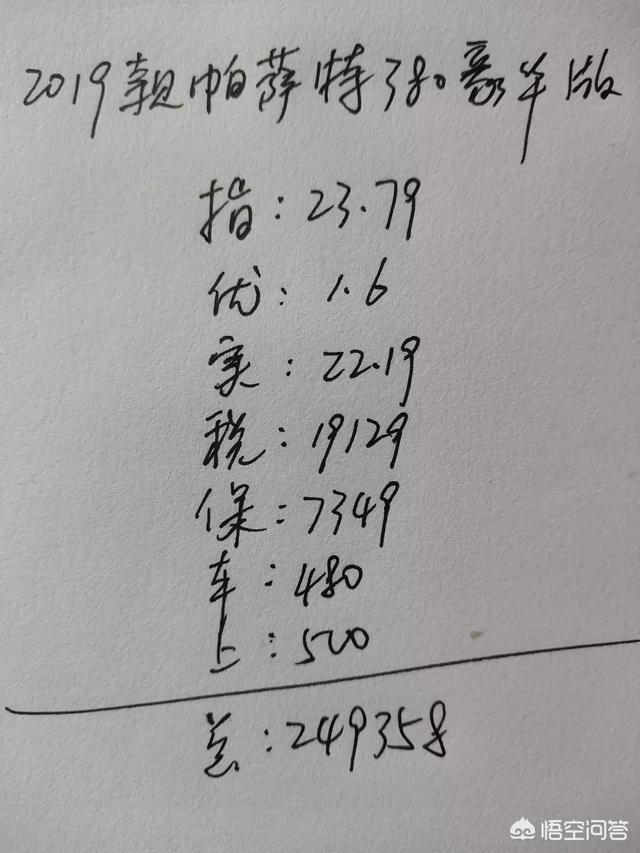 2019款帕萨特380豪华版
指:23.79
优:1.6
实:22.19
税:19129
保:7349
车:480
上:500
总:249358
悟空问答